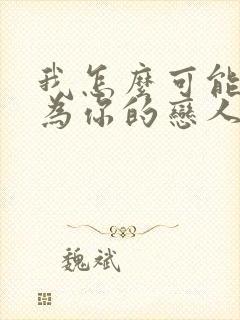 我怎麼可能
為你的戀人
魏斌